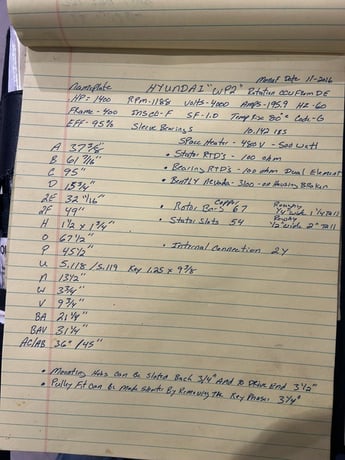 Manuf Date 11-2016
Nameplate HYUNDAI "WP2" Rotation CCW From DE
HP: 1400 RPM-1188 Volts-4000 Amps-195.9 HZ-60
Frame-400 INSCO-F SF-1.0 Temp Rise 80° Code-G
Eff-95% Sleeve Bearings 10,142 lbs
Space Heater - 480V - 500 Watt
A 37 3/8
B 61 7/16"
C 95"
D 15 3/4"
2E 32 "/16"
2F 49"
H 1 1/2 x 1 3/4"
O 67 1/2"
P 45 1/2"
U 5.118/5.119 Key 1.25 x 9 3/8
N 13 1/2
W 3 3/4"
V 9 3/4"
BA 21 1/4"
BAV 31 1/4"
AC/AB 36"/45"
• Stator RTD's - 100 ohm
• Bearing RTD's - 100 ohm Dual Element
• Bently Nevada - 3300 - on Housing
• Rotor Bars 67 Copper Roughly 1/4" wide 1 1/4 Tall
• Stator Slots 54 Roughly 1/2" wide 2" Tall
• Internal Connection 2Y
• Mounting Holes Can Be Sloted Back 3/4" And To Drive End 3 1/2"
• Pulley Fit Can Be Made Shorter By Removing The Key Phaser 3 1/4"